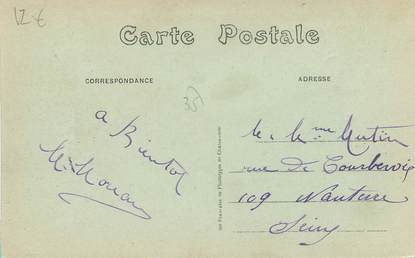 12 €
Carte Postale
CORRESPONDANCE
ADRESSE
35
a Bientot
M. Mme Mutin
rue de Courbevoie
109 Nanterre
Seine